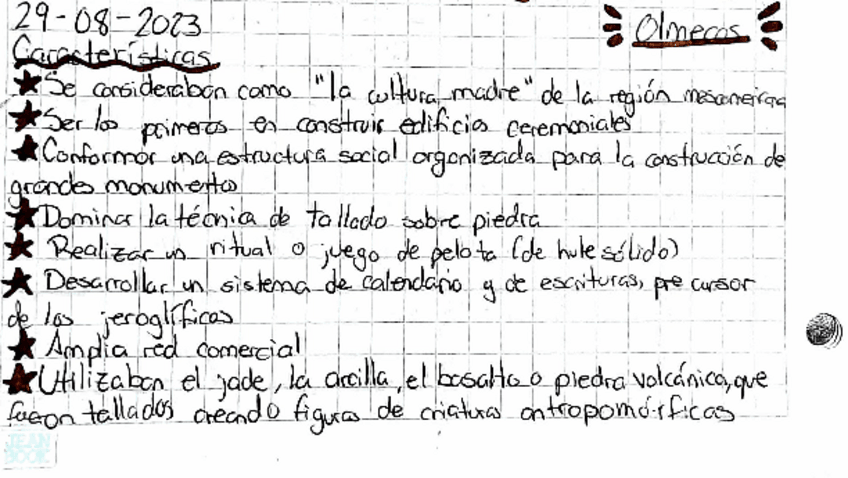 29-08-2023
Olmecas
Características
Se consideraban como "la cultura madre" de la región mesoamericana
Ser los primeros en construir edificios ceremoniales
Conformar una estructura social organizada para la construcción de
grandes monumentos
Dominar la técnica de tallado sobre piedra
Realizar un ritual o juego de pelota (de hule sólido)
Desarrollar un sistema de calendario y de escrituras, pre cursor
de los jeroglíficos
Amplia red comercial
Utilizaban el jade, la arcilla, el basalto o piedra volcánica, que
fueron tallados creando figuras de criaturas antropomórficas
JEAN
BOOK